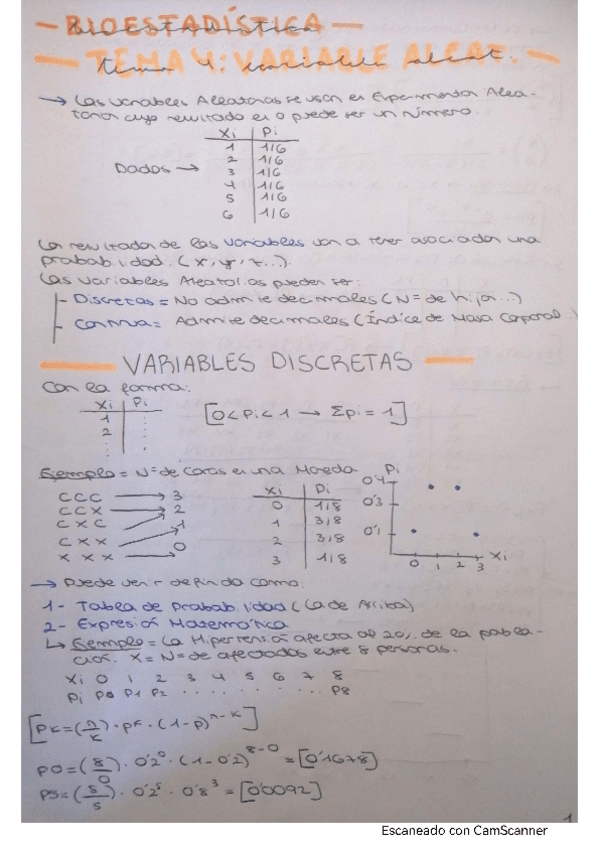 — BIOESTADÍSTICA —
— TEMA 4: VARIABLE ALEAT. —
→ Las variables Aleatorias se usan en Experimentos Alea-
torios cuyo resultado es o puede ser un número.
Xi | Pi
1 | 1/6
2 | 1/6
Dados → 3 | 1/6
4 | 1/6
5 | 1/6
6 | 1/6
Los resultados de las variables van a tener asociados una
probabilidad. (x, y, z...).
Las variables Aleatorias pueden ser:
- Discretas = No admite decimales (Nº de hijos...)
- Continua = Admite decimales (Índice de Masa Corporal.)
— VARIABLES DISCRETAS —
Con la forma:
Xi | Pi
1 | :
2 | :
: | :
[0<Pi<1 → Σpi = 1]
Ejemplo = Nº de caras en una Moneda
CCC → 3
CCX → 2
CXC
CXX → 1
XXX → 0
Xi | Pi
0 | 1/8
1 | 3/8
2 | 3/8
3 | 1/8
Pi
0'4
0'3
0'1
0 1 2 3 Xi
→ Puede venir definida como:
1- Tabla de probabilidad (La de Arriba)
2- Expresión Matemática
↳ Ejemplo = La Hipertensión afecta al 20% de la pobla-
ción. X = Nº de afectados entre 8 personas.
Xi 0 1 2 3 4 5 6 7 8
Pi P0 P1 P2 ............ P8
[PK = (n/K) · pK · (1-p)^n-K]
P0 = (8/0) · 0'2^0 · (1-0'2)^8-0 = [0'1678]
P5 = (5/5) · 0'2^5 · 0'8^3 = [0'0092]
1
Escaneado con CamScanner